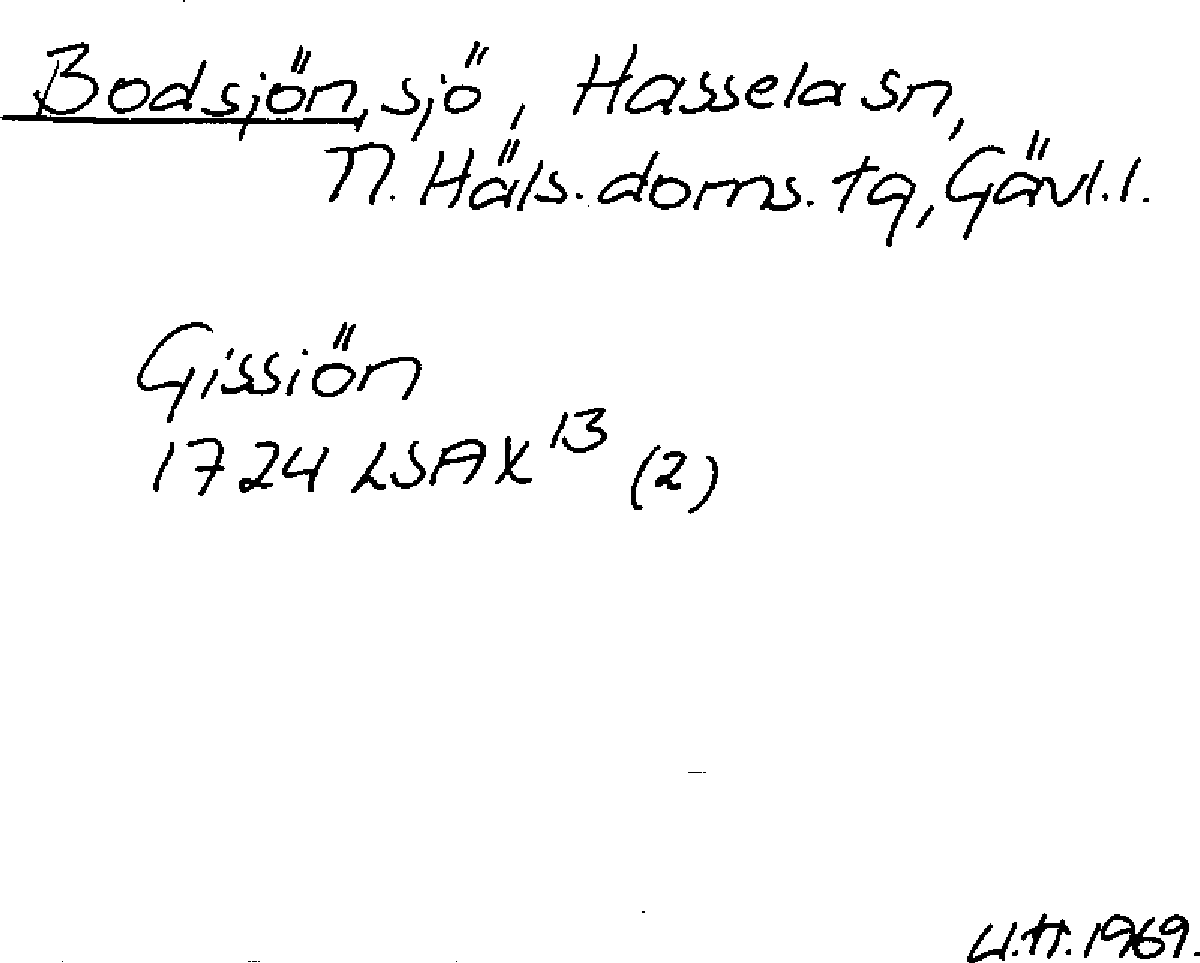 Bodsjön, sjö, Hassela sn,
N. Häls. doms. tg, Gävl. l.
Gissiön
1724 LSA X 13 (2)
1969.